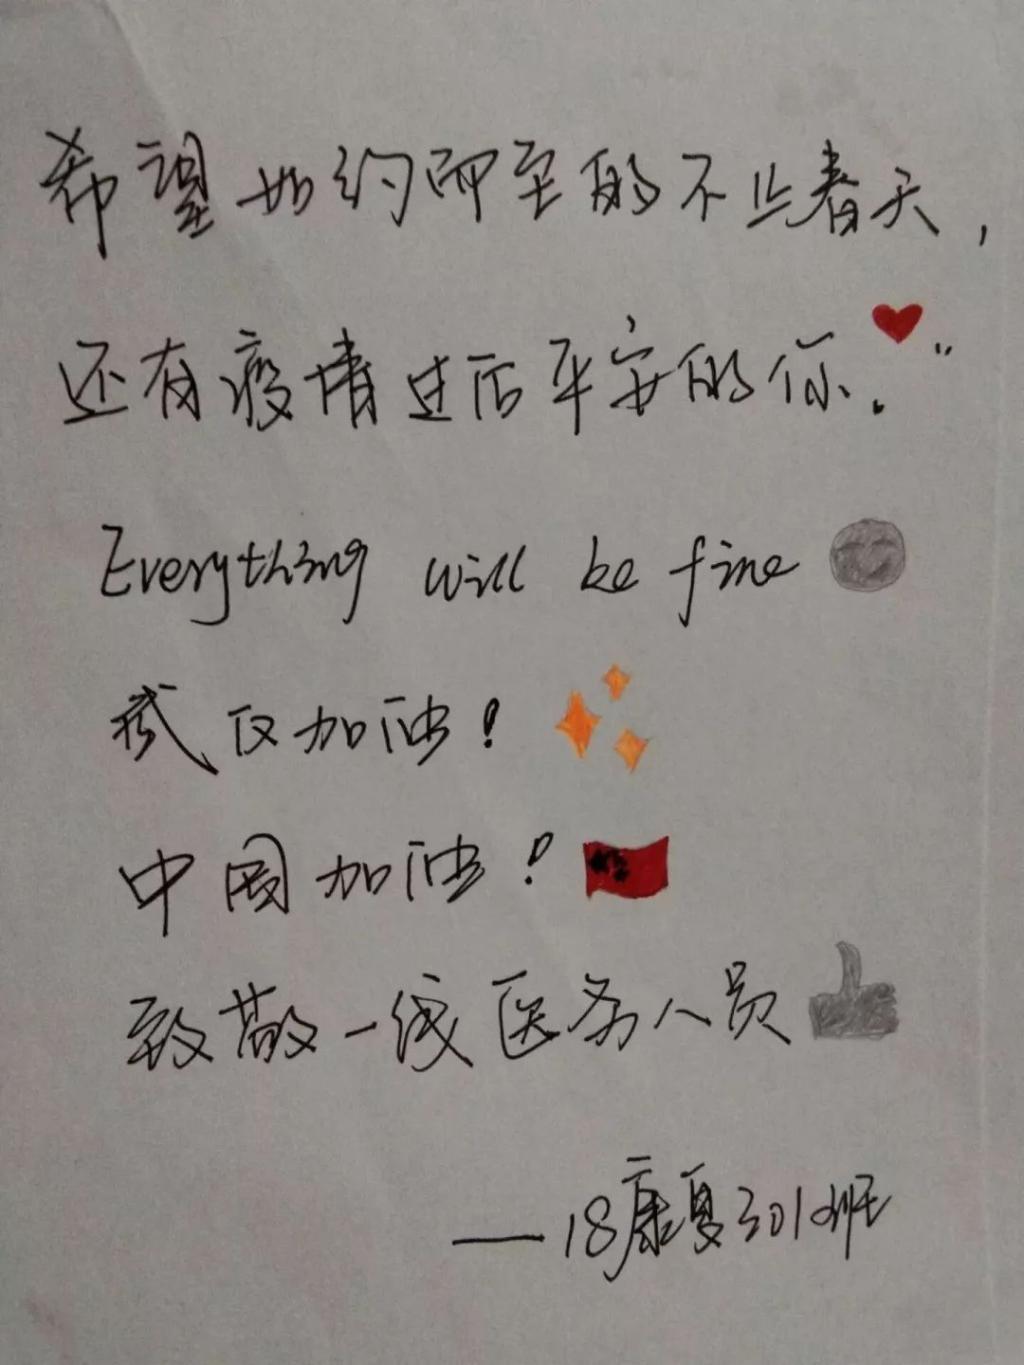 希望如约而至的不止春天,
还有疫情过后平安的你."
Everything will be fine
武汉加油!
中国加油!
致敬一线医务人员
——18康复301班